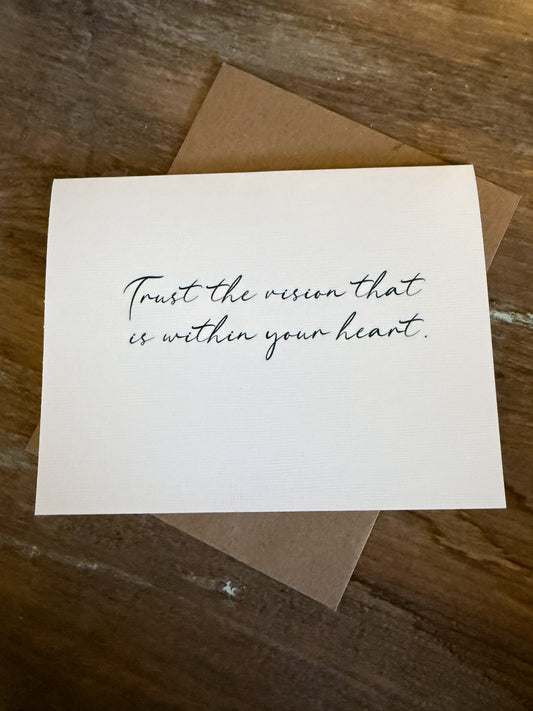 Trust the vision that
is within your heart.